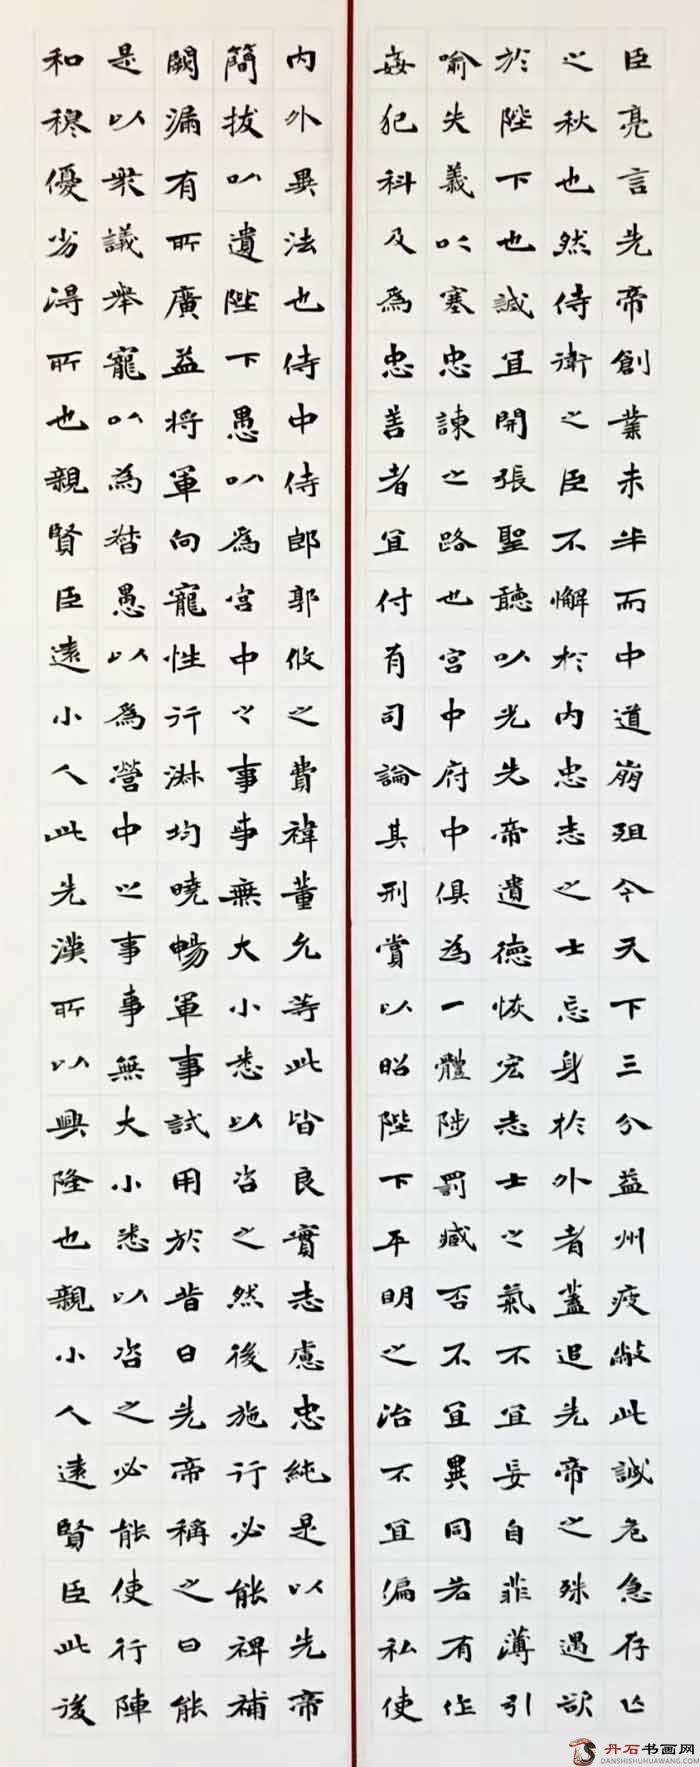 臣亮言先帝創業未半而中道崩殂今天下三分益州疲敝此誠危急存亡
之秋也然侍衛之臣不懈於內忠志之士忘身於外者蓋追先帝之殊遇欲
於陛下也誠宜開張聖聽以光先帝遺德恢宏志士之氣不宜妄自菲薄引
喻失義以塞忠諫之路也宮中府中俱為一體陟罰臧否不宜異同若有作
姦犯科及為忠善者宜付有司論其刑賞以昭陛下平明之治不宜偏私使
內外異法也侍中侍郎郭攸之費禕董允等此皆良實志慮忠純是以先帝
簡拔以遺陛下愚以為宮中之事事無大小悉以咨之然後施行必能裨補
闕漏有所廣益將軍向寵性行淋均曉暢軍事試用於昔日先帝稱之曰能
是以衆議舉寵以為督愚以為營中之事事無大小悉以咨之必能使行陣
和穆優劣得所也親賢臣遠小人此先漢所以興隆也親小人遠賢臣此後
丹石书画网
DANSHISHUHUAWANG.COM